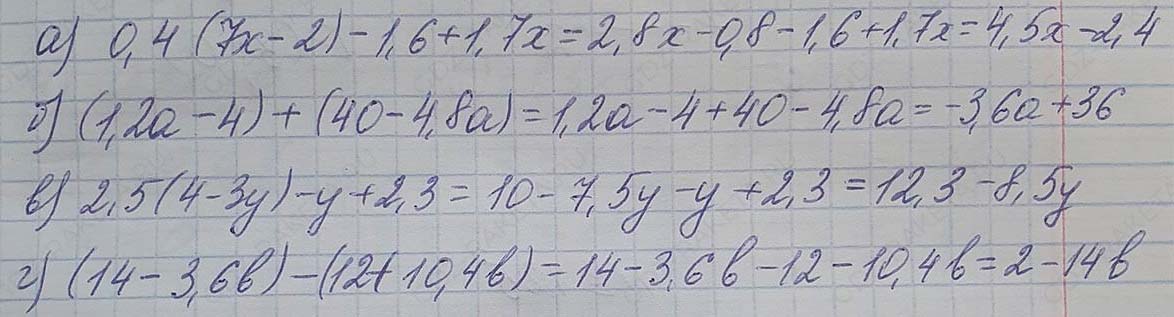 а) 0,4 (7x - 2) - 1,6 + 1,7x = 2,8x - 0,8 - 1,6 + 1,7x = 4,5x - 2,4
б) (1,2a - 4) + (40 - 4,8a) = 1,2a - 4 + 40 - 4,8a = -3,6a + 36
в) 2,5 (4 - 3y) - y + 2,3 = 10 - 7,5y - y + 2,3 = 12,3 - 8,5y
г) (14 - 3,6b) - (12 + 10,4b) = 14 - 3,6b - 12 - 10,4b = 2 - 14b